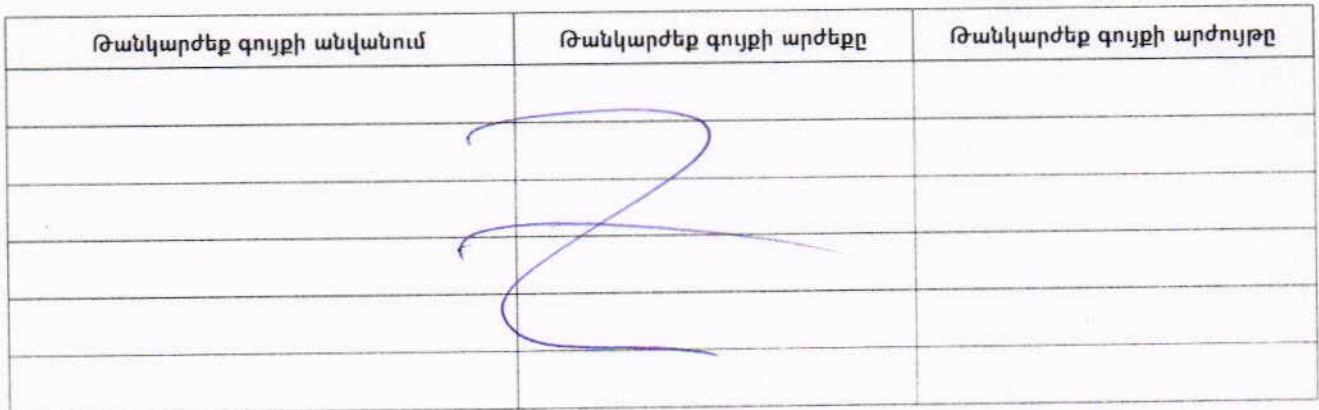 Թանկարժեք գույքի անվանում Թանկարժեք գույքի արժեքը Թանկարժեք գույքի արժույթը